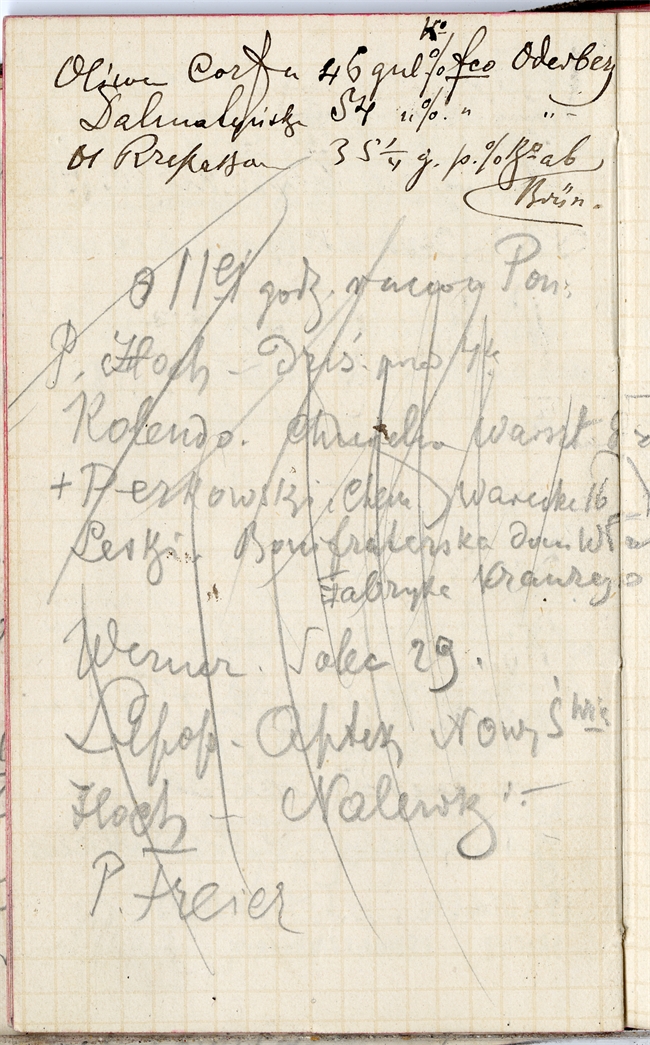 Ko
Oliwa Corfu 46 gul % fco Oderberg
Dalmatyńska 54 " % " "
Ol Rzepakow 35 1/4 g. p. % Ko ab
Brün.
o 11ej godz. Pon.
P. Hoch - Dziś.
Kolendo. Chmielna Warszt
+ Perkowski. Chem Warecka 16
Leski. Bonifraterska dom Wł
Fabryka Krauzego
Werner. Solec 29.
Lilpop - Aptek Nowy Świe
Hoch - Nalewki
P. Freier